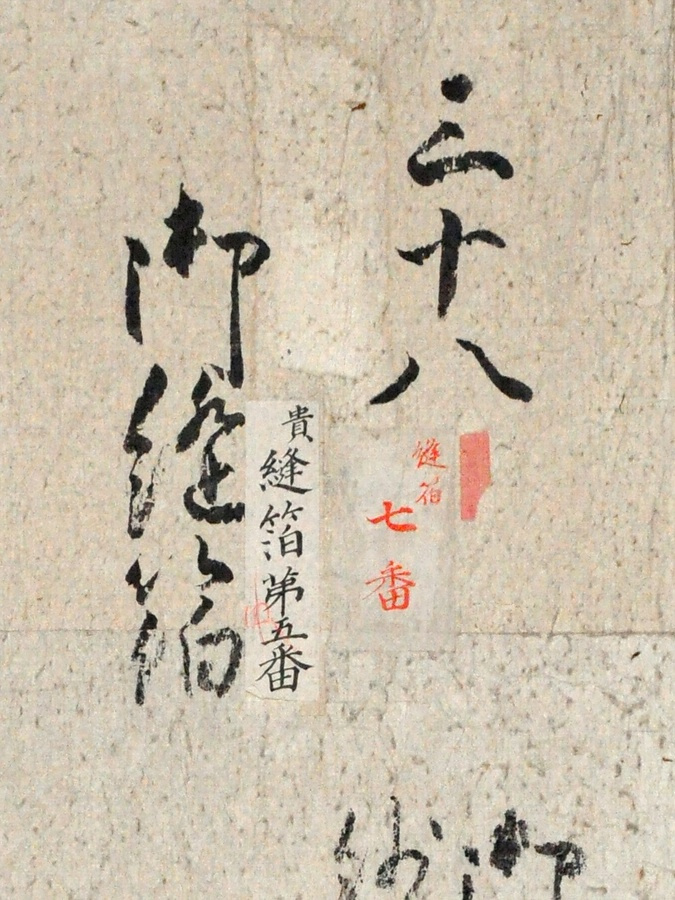 三十八
縫箔
七番
貴
縫箔第五番
御縫箔
御
紗